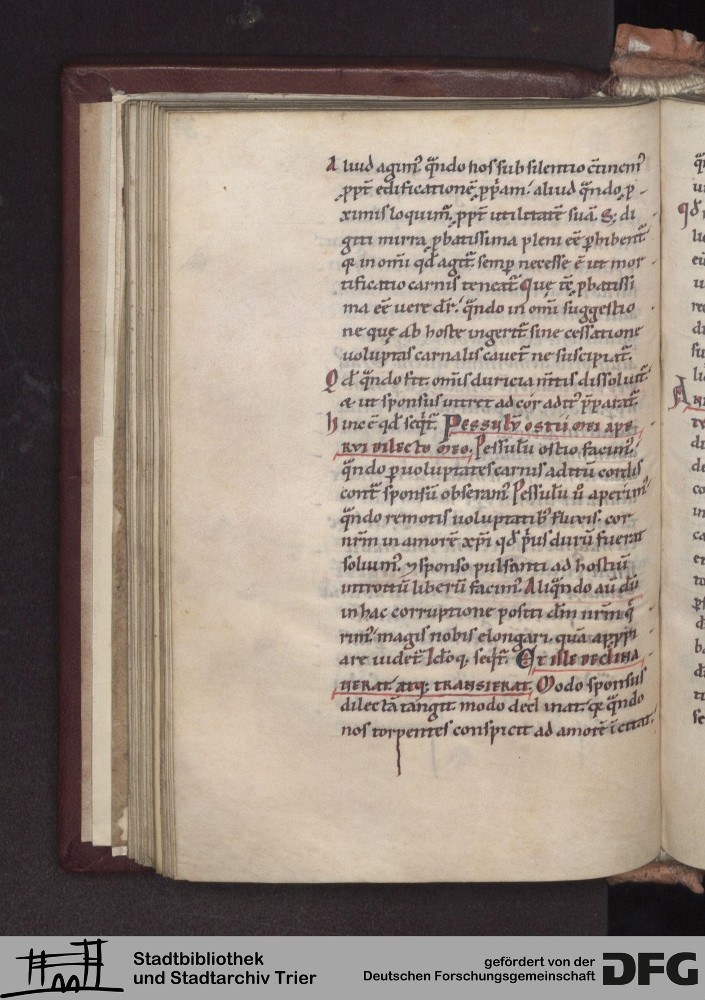 Aliud agimꝰ q̄ndo hos sub silentio c̄tinemꝰ
ꝓpt̄ edificationē ꝓp̄am. aliud q̄ndo ꝓ-
ximis loquimꝰ. ꝓpt̄ utilitatē suā. S; di
giti mirra ꝓbatissima pleni eē ꝓhibent᷑
q̄ in om̄i qd̄ agit᷑ semꝑ necesse ē ut mor
tificatio carnis teneat᷑. Que tc̄ ꝓbatissi
ma eē uere dr̄. q̄ndo in om̄i suggestio
ne quę ab hoste ingerit᷑ sine cessatione
uoluptas carnalis cauet᷑ ne suscipiat᷑.
Qd̄ q̄ndo fit. om̄is duricia m̄tis dissoluit᷑
& ut sponsus intret ad cor aditꝰ p̄parat᷑.
hinc ē qd̄ seq̄t᷑. Pessulū ostii mei ape
rui dilecto meo. Pessulū ostio facimꝰ.
q̄ndo ꝑ uoluptates carnis aditū cordis
cont᷑ sponsū obseramꝰ. Pessulū ū aperimꝰ
q̄ndo remotis uoluptatibꝫ fluxis. cor
nr̄m in amorē xp̄i qd̄ p̄us durū fuerat
soluimꝰ. ⁊ sponso pulsanti ad hostiū
introitū liberū facimꝰ. Aliq̄ndo aū dū
in hac corruptione positi dn̄m nr̄m q̄
rimꝰ. magis nobis elongari. quā appropi
are uidet᷑. Idoq; seq̄t᷑. Et ille declina
uerat. atq; transierat. Modo sponsus
dilectā tangit. modo declinat. q̄ q̄ndo
nos torpentes conspicit ad amorē īcitat.
Stadtbibliothek
und Stadtarchiv Trier
gefördert von der
Deutschen Forschungsgemeinschaft
DFG